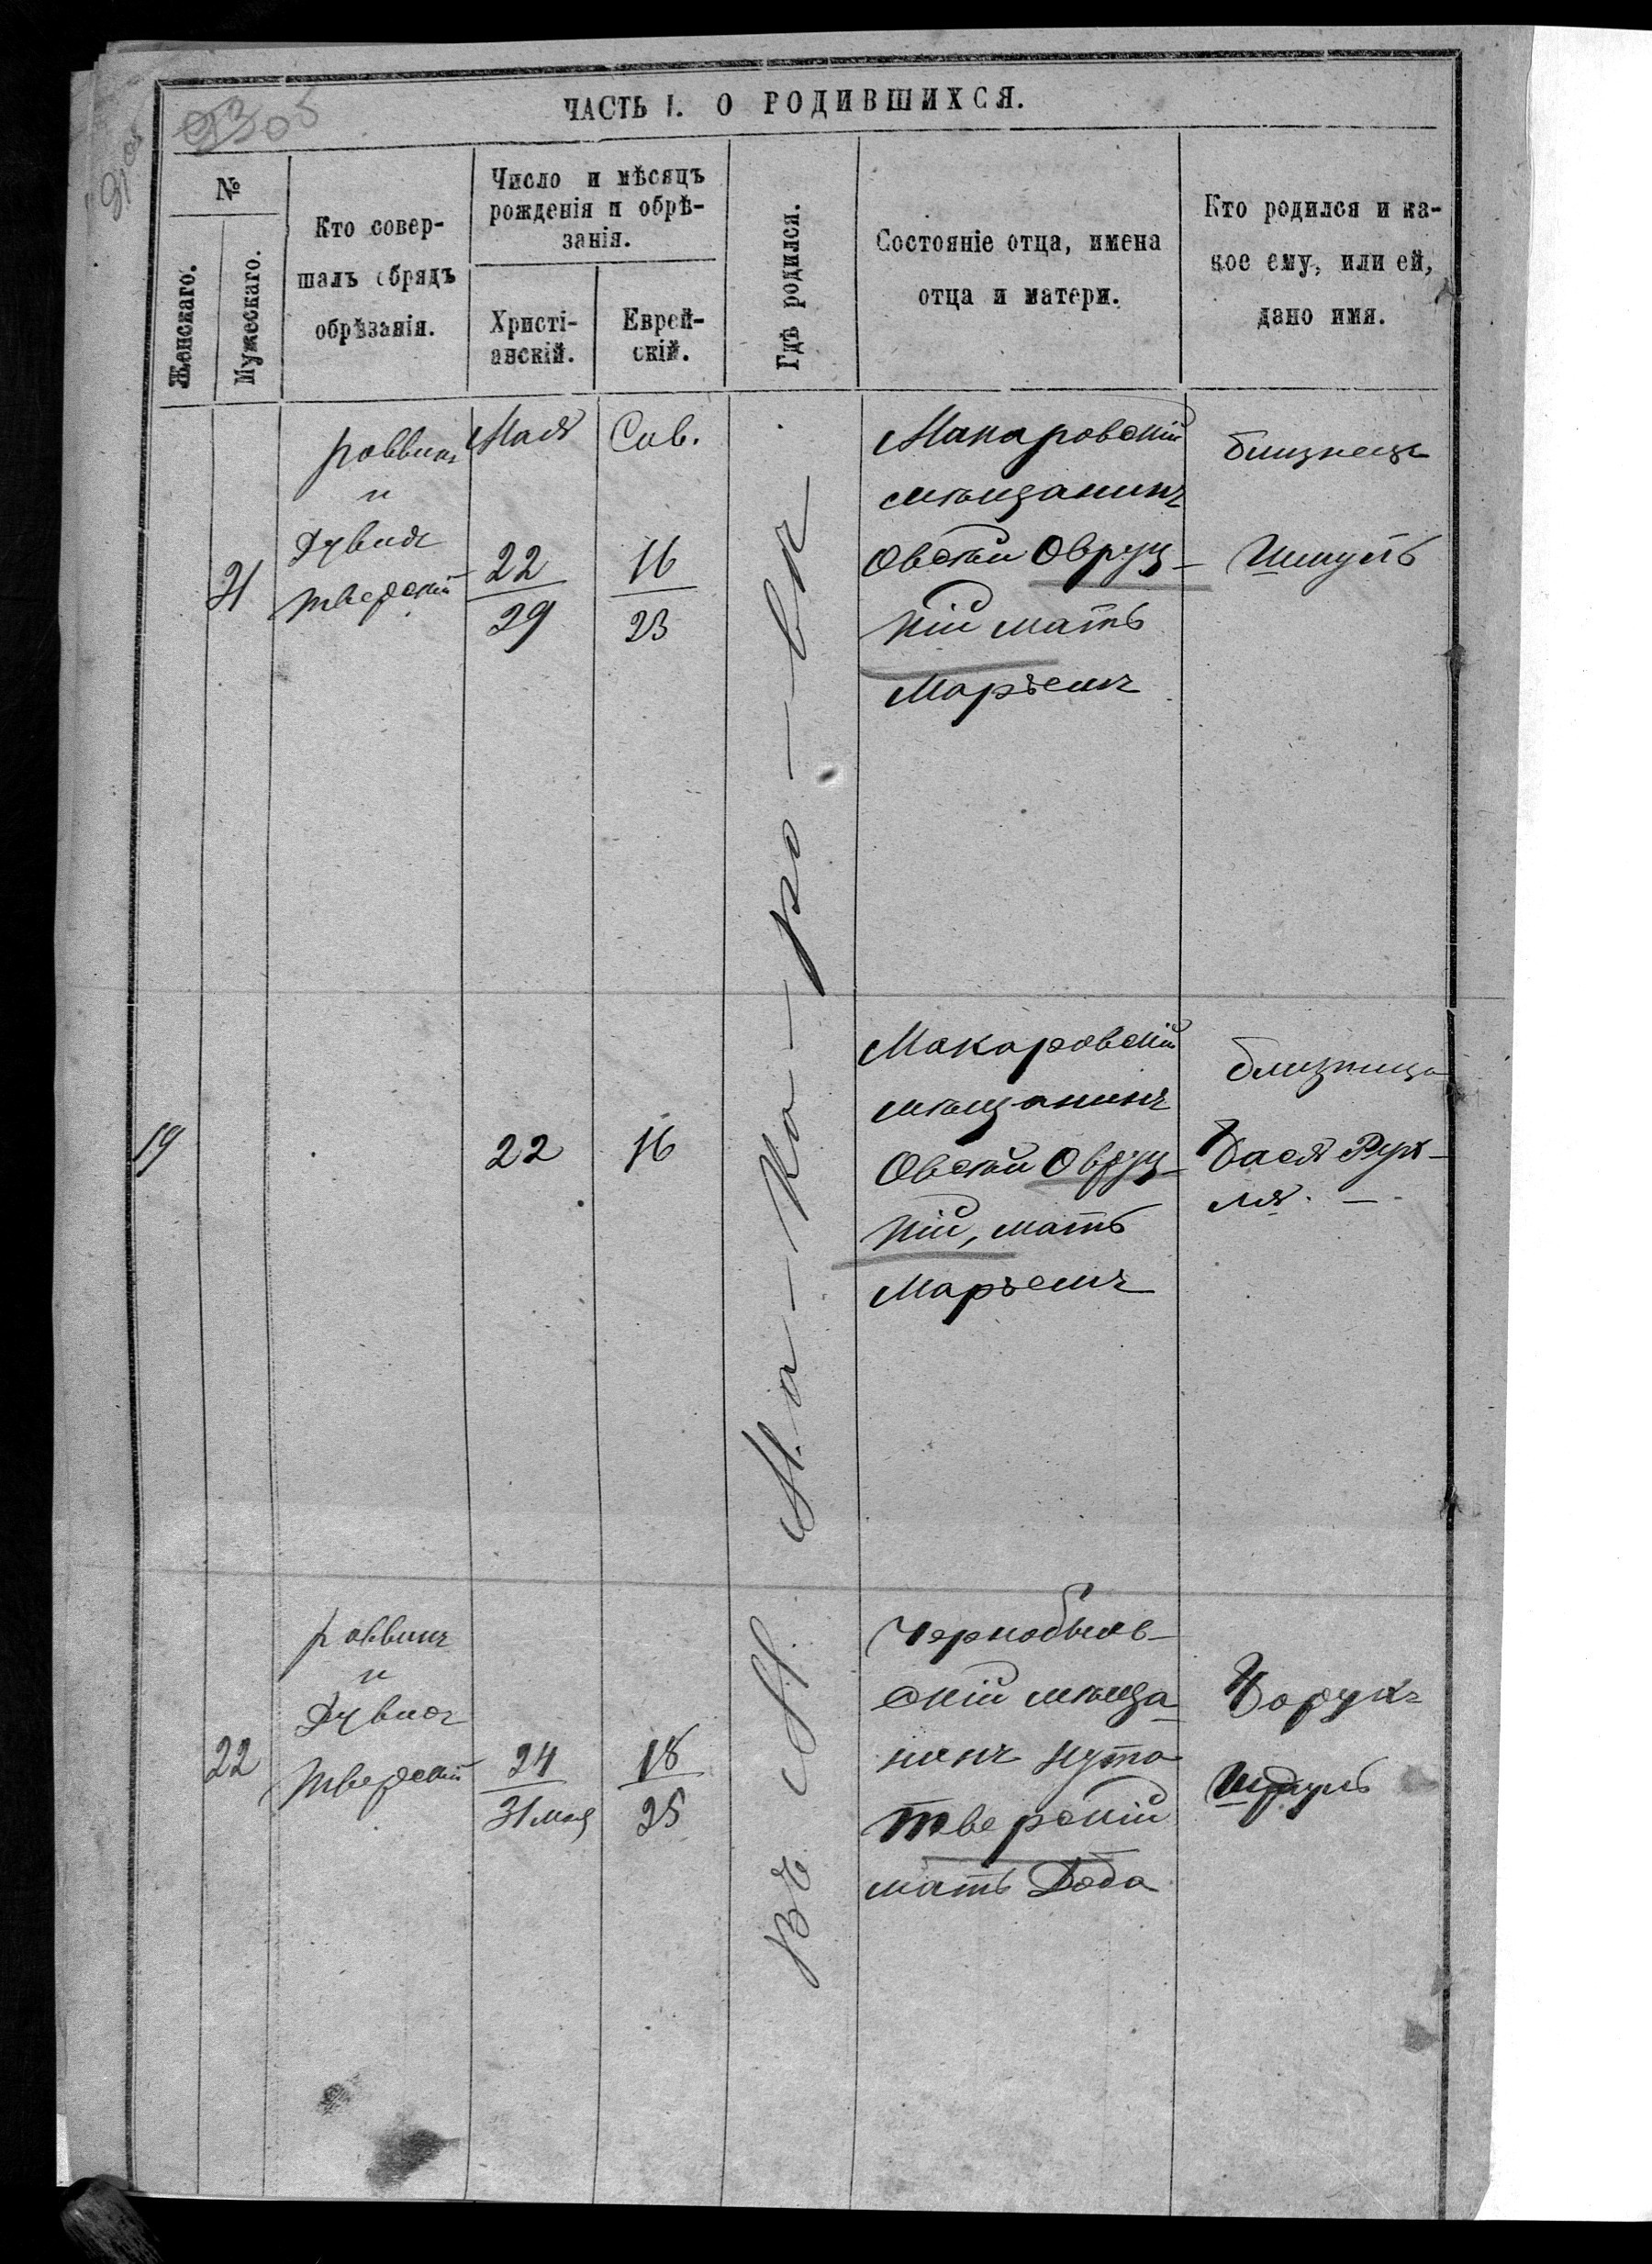 ЧАСТЬ I. О РОДИВШИХСЯ.
№
Женскаго.
Мужескаго.
Кто совер-
шалъ обрядъ
обрѣзанія.
Число и мѣсяцъ
рожденія и обрѣ-
занія.
Христі-
анскій.
Еврей-
скій.
Гдѣ родился.
Состояніе отца, имена
отца и матери.
Кто родился и ка-
кое ему, или ей,
дано имя.
Въ М. Ма-ка-ро-вѣ
21
раввинъ
и
Дувидъ
Тверскій
Мая
22
29
Сив.
16
23
Макаровскій
мѣщанинъ
Овсѣй Овруц-
кій мать
Марьемъ
близнецъ
Шмуль
19
22
16
Макаровскій
мѣщанинъ
Овсѣй Овруц-
кій, мать
Марьемъ
близница
Бася Рух-
ля. —
22
раввинъ
и
Дувидъ
Тверскій
24
31 мая
18
25
Чернобыль-
скій мѣща-
нинъ Нута
Тверскій
мать Доба
Борухъ